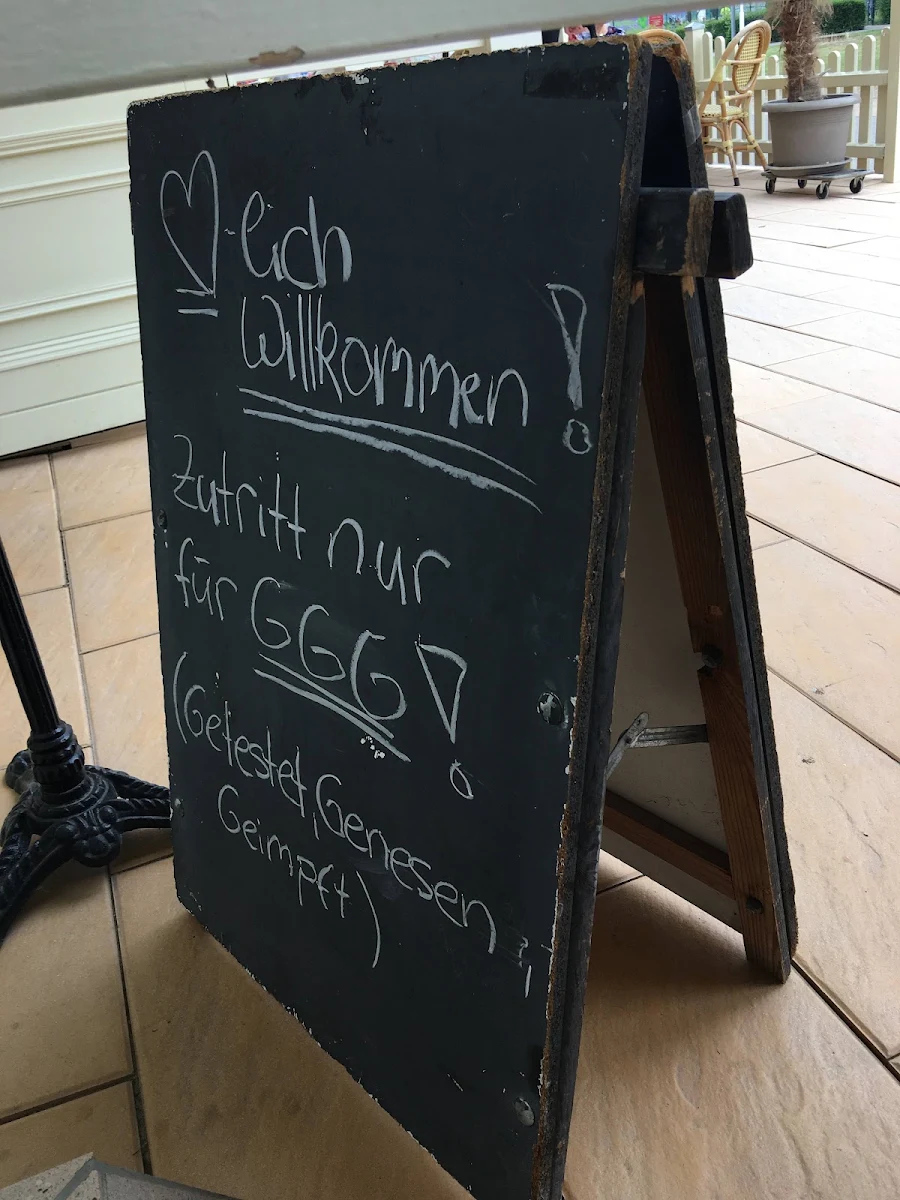 ♡-lich
Willkommen!
Zutritt nur
für GGG!
(Getestet, Genesen,
Geimpft)